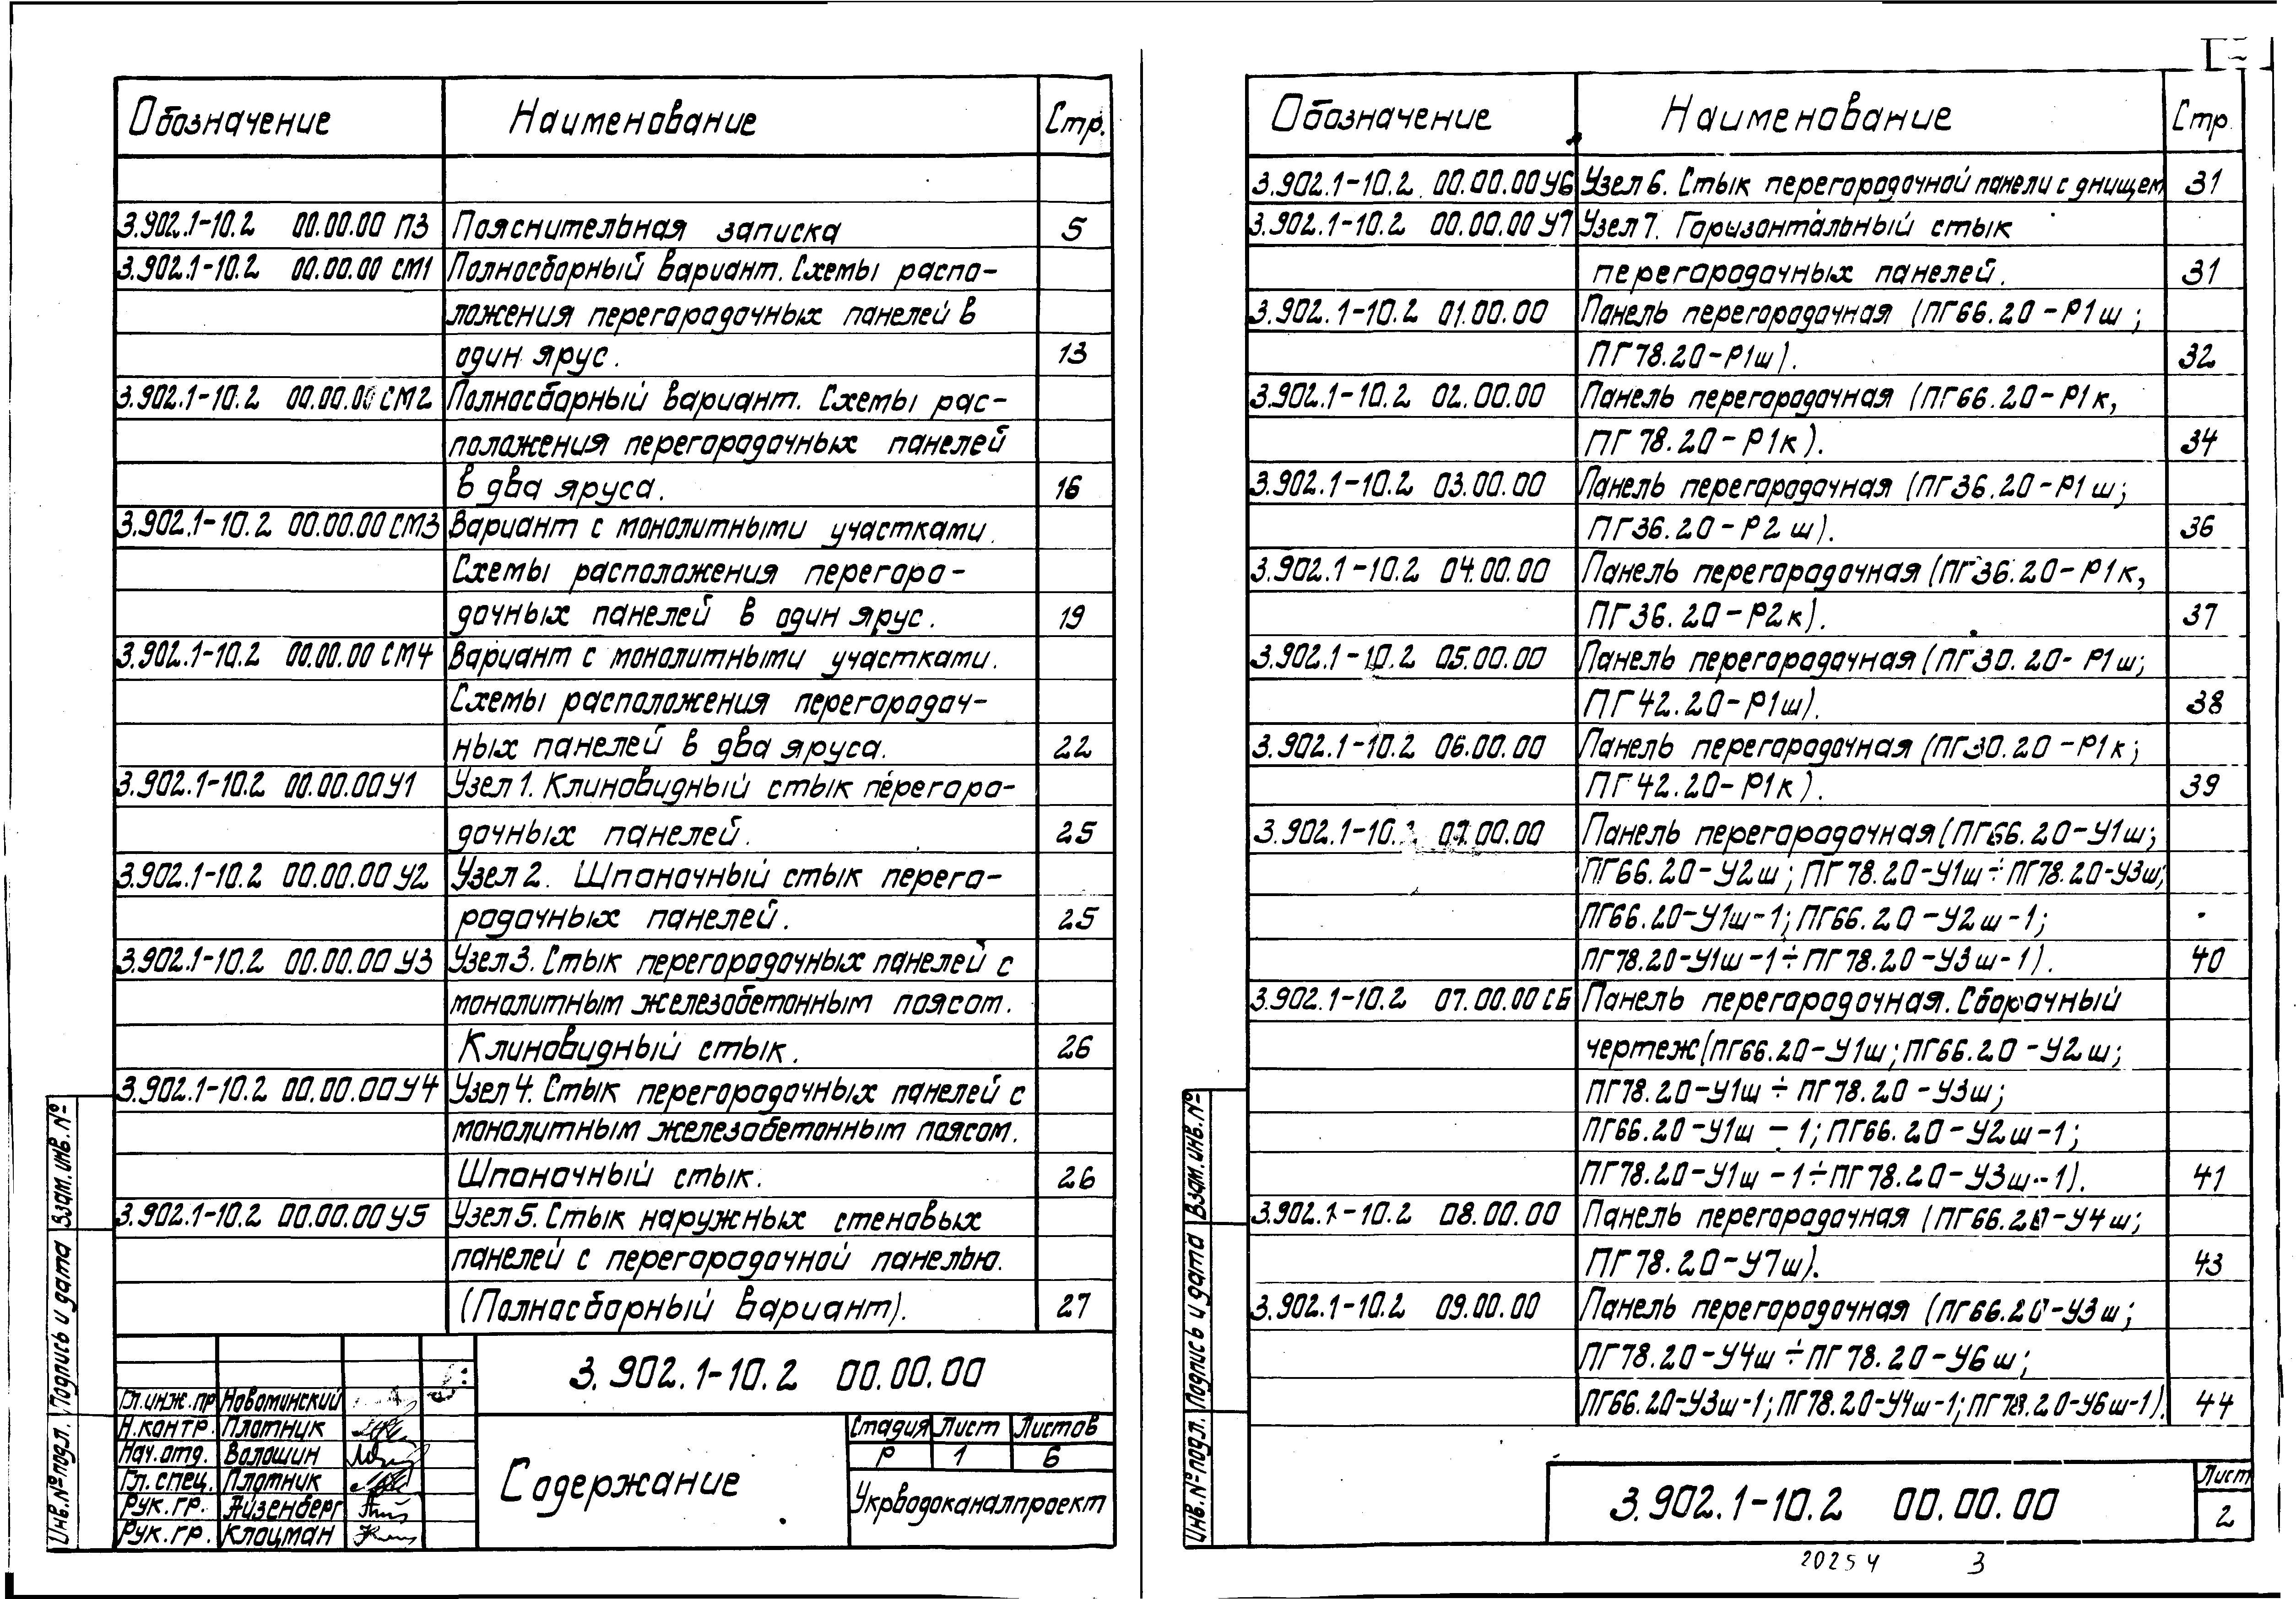 Обозначение Наименование Стр.
3.902.1-10.2 00.00.00 ПЗ Пояснительная записка 5
3.902.1-10.2 00.00.00 СМ1 Полносборный вариант. Схемы распо-
ложения перегородочных панелей в
один ярус. 13
3.902.1-10.2 00.00.00 СМ2 Полносборный вариант. Схемы рас-
положения перегородочных панелей
в два яруса. 16
3.902.1-10.2 00.00.00 СМ3 Вариант с монолитными участками.
Схемы расположения перегоро-
дочных панелей в один ярус. 19
3.902.1-10.2 00.00.00 СМ4 Вариант с монолитными участками.
Схемы расположения перегородоч-
ных панелей в два яруса. 22
3.902.1-10.2 00.00.00 У1 Узел 1. Клиновидный стык перегоро-
дочных панелей. 25
3.902.1-10.2 00.00.00 У2 Узел 2. Шпоночный стык перего-
родочных панелей. 25
3.902.1-10.2 00.00.00 У3 Узел 3. Стык перегородочных панелей с
монолитным железобетонным поясом.
Клиновидный стык. 26
3.902.1-10.2 00.00.00 У4 Узел 4. Стык перегородочных панелей с
монолитным железобетонным поясом.
Шпоночный стык. 26
3.902.1-10.2 00.00.00 У5 Узел 5. Стык наружных стеновых
панелей с перегородочной панелью.
(Полносборный вариант). 27
3.902.1-10.2 00.00.00
Гл.инж.пр Новоминский
Н.контр. Плотник
Нач.отд. Волошин
Гл.спец. Плотник
Рук.гр. Айзенберг
Рук.гр. Клоцман
Содержание
Стадия Лист Листов
Р 1 6
Укрводоканалпроект
Инв.№подл. Подпись и дата Взам.инв.№
Обозначение Наименование Стр.
3.902.1-10.2 00.00.00 У6 Узел 6. Стык перегородочной панели с днищем 31
3.902.1-10.2 00.00.00 У7 Узел 7. Горизонтальный стык
перегородочных панелей. 31
3.902.1-10.2 01.00.00 Панель перегородочная (ПГ66.20-Р1ш;
ПГ78.20-Р1ш). 32
3.902.1-10.2 02.00.00 Панель перегородочная (ПГ66.20-Р1к,
ПГ78.20-Р1к). 34
3.902.1-10.2 03.00.00 Панель перегородочная (ПГ36.20-Р1ш;
ПГ36.20-Р2ш). 36
3.902.1-10.2 04.00.00 Панель перегородочная (ПГ36.20-Р1к,
ПГ36.20-Р2к). 37
3.902.1-10.2 05.00.00 Панель перегородочная (ПГ30.20-Р1ш;
ПГ42.20-Р1ш). 38
3.902.1-10.2 06.00.00 Панель перегородочная (ПГ30.20-Р1к;
ПГ42.20-Р1к). 39
3.902.1-10.2 07.00.00 Панель перегородочная (ПГ66.20-У1ш;
ПГ66.20-У2ш; ПГ78.20-У1ш÷ПГ78.20-У3ш;
ПГ66.20-У1ш-1; ПГ66.20-У2ш-1;
ПГ78.20-У1ш-1÷ПГ78.20-У3ш-1). 40
3.902.1-10.2 07.00.00 СБ Панель перегородочная. Сборочный
чертеж (ПГ66.20-У1ш; ПГ66.20-У2ш;
ПГ78.20-У1ш ÷ ПГ78.20-У3ш;
ПГ66.20-У1ш-1; ПГ66.20-У2ш-1;
ПГ78.20-У1ш-1÷ПГ78.20-У3ш-1). 41
3.902.1-10.2 08.00.00 Панель перегородочная (ПГ66.20-У4ш;
ПГ78.20-У7ш). 43
3.902.1-10.2 09.00.00 Панель перегородочная (ПГ66.20-У3ш;
ПГ78.20-У4ш÷ПГ78.20-У6ш;
ПГ66.20-У3ш-1; ПГ78.20-У4ш-1; ПГ78.20-У6ш-1). 44
3.902.1-10.2 00.00.00
Лист
2
Инв.№подл. Подпись и дата Взам.инв.№
20254 3